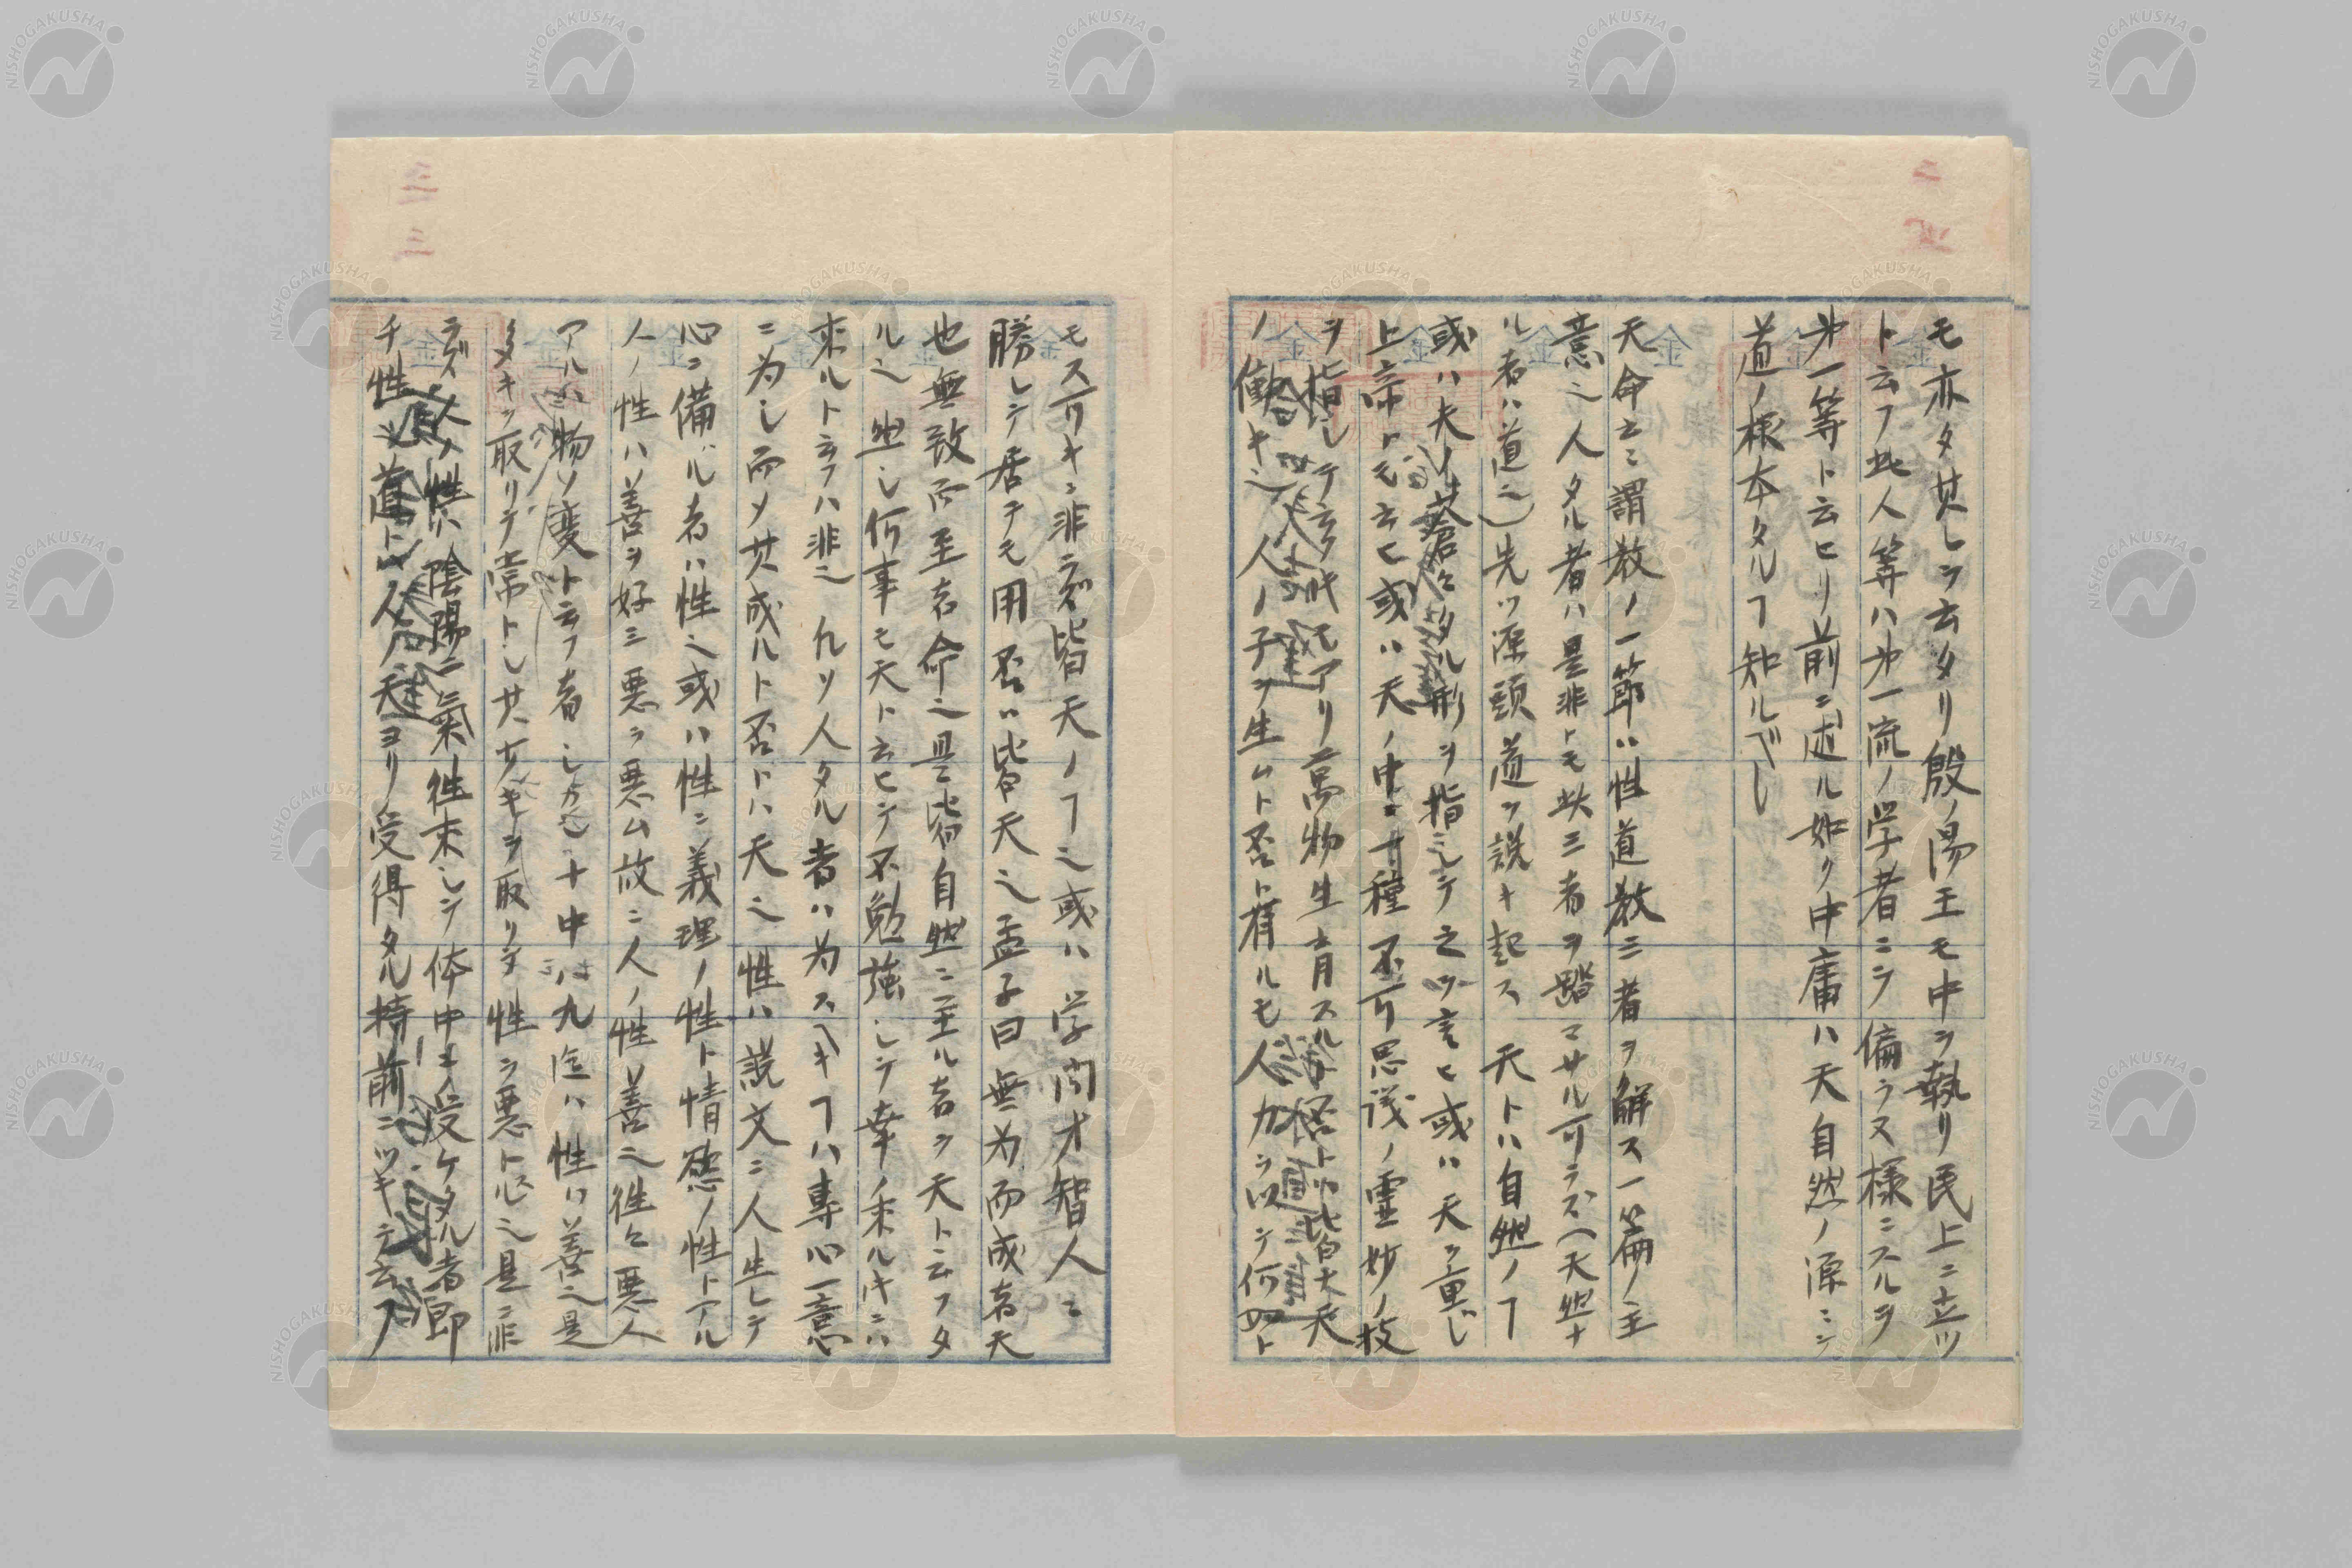 モ亦タ其レヲ云タリ殷ノ湯王モ中ヲ執リ民上ニ立ツ
ト云フ此人等ハ㐧一流ノ学者ニシテ偏ラヌ様ニスルヲ
㐧一等ト云ヒリ前ニ述ル如ク中庸ハ天自然ノ源ニシ
道ノ根本タルヿ知ルベレ
天命之謂教ノ一節ハ性道教三者ヲ解ス一篇ノ主
意也人タル者ハ是非トモ此三者ヲ踏マサル可ラズ(天然ナ
ル者ハ道也)先ツ源頭道ヲ説キ起ス天トハ自然ノヿ
或ハ夫ノ蒼々タル形ヲ指シテ之ヲ言ヒ或ハ天ヲ重ジ
上帝トモ云ヒ或ハ天ノ中ニ一種不可思議ノ霊妙ノ枝
ヲ指シテ云フモアリ萬物生育スル皆大天
ノ働キ也人ノ子ヲ生ムト否ト有ルモ人力ヲ以テ何如ト
モス可キニ非ラズ皆天ノヿ也或ハ学問才智人ニ
勝レテ居テモ用否ハ皆天也孟子曰無為而成者天
也無致而至者命也是皆自然ニ至ル者ヲ天ト云フタ
ル也然レ何事モ天ト云ヒテ不勉強シテ幸ノ来ルキニハ
来ルト云フハ非也凡ソ人タル者ハ為スヘキヿハ專心一意
ニ為シ而メ其成ルト否トハ天也性ハ説文ニ人生レテ
心ニ備ハル者ハ性也或ハ性ニ義理ノ性ト情慾ノ性トアル
人ノ性ハ善ヲ好ミ悪ヲ悪ム故ニ人ノ性ハ善也徃々悪人
アルハ物ノ變ト云フ者レ十中八九迄ハ性ハ善也是
タメキヲ取リテ常トし其少キヲ取リテ性ヲ悪ト心也是ニ非
ラズ人ノ性ハ陰陽二氣徃来シテ体中ニ受ケタル者即
チ性人ノ天ヨリ受得タル持前ニツキテ云フ
二
三
三
NISHOGAKUSHA